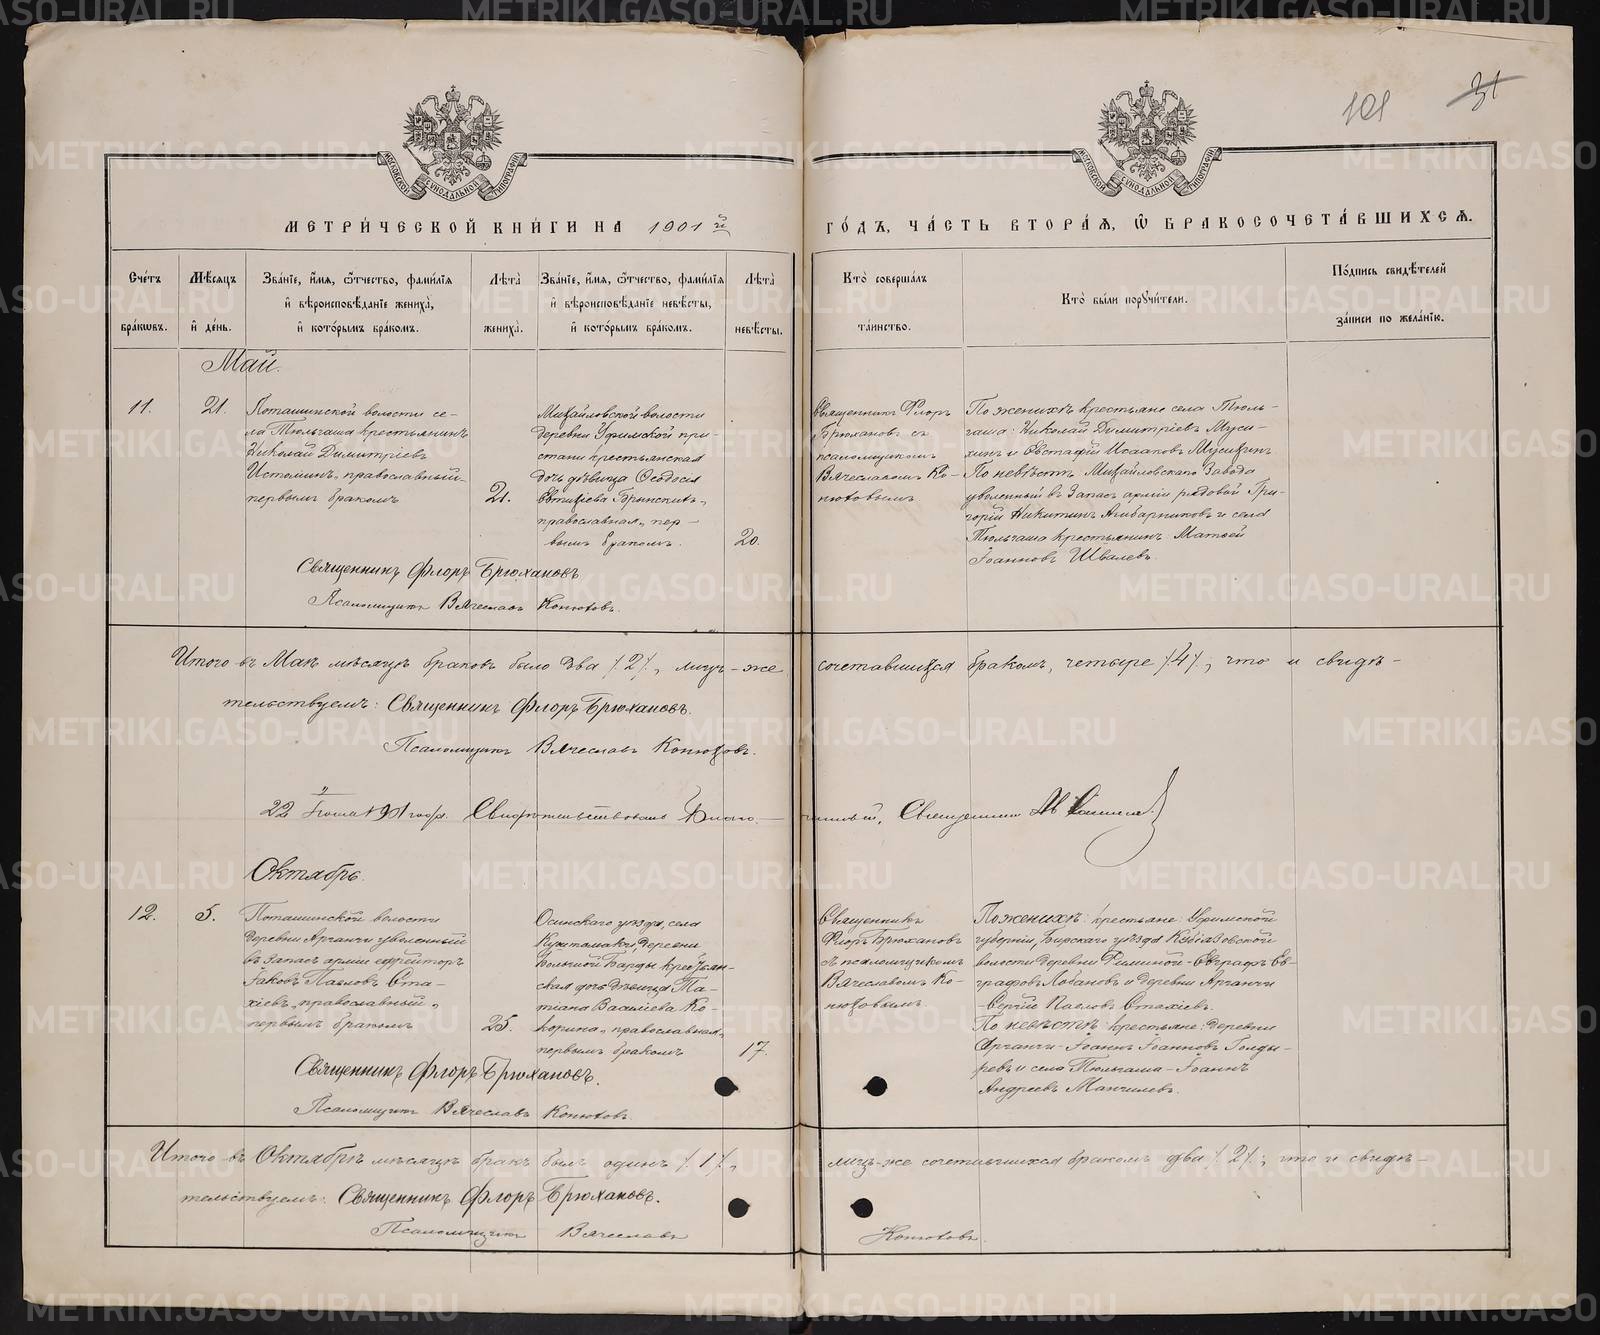 101 31
МОСКОВСКОЙ СѴНОДАЛЬНОЙ ТИПОГРАФІИ
МОСКОВСКОЙ СѴНОДАЛЬНОЙ ТИПОГРАФІИ
МЕТРИ́ЧЕСКОЙ КНИ́ГИ НА 1901й ГО́ДЪ, ЧА́СТЬ ВТОРА́Я, Ѽ БРАКОСОЧЕТА́ВШИХСЯ.
Сче́тъ бра́кѡвъ.
Мѣ́сяцъ и де́нь.
Зва́ніе, и́мя, ѻ́тчество, фами́лія
и вѣроисповѣ́даніе жениха̀,
и кото́рымъ бра́комъ.
Лѣ́та жениха̀.
Зва́ніе, и́мя, ѻ́тчество, фами́лія
и вѣроисповѣ́даніе невѣ́сты,
и кото́рымъ бра́комъ.
Лѣ́та невѣ́сты.
Кто̀ соверша́лъ
та́инство.
Кто̀ бы́ли порꙋчи́тели.
По́дпись свидѣ́телей
за́писи по жела́нію.
Май.
11.
21.
Поташинской волости се-
ла Тюльгаша крестьянинъ
Николай Димитріевъ
Истоминъ, православный,
первымъ бракомъ
21.
Михайловской волости
деревни Уфимской при-
стани крестьянская
дочь дѣвица Ѳеодосія
православная, пер-
вымъ бракомъ.
20.
Священникъ Флоръ
Брюхановъ съ
псаломщикомъ
Вячеславомъ Ко-
нюховымъ
По женихѣ крестьяне села Тюль-
гаша: Николай Димитріевъ Муси-
хинъ и Евстафій Исааковъ Мусихинъ
По невѣстѣ Михайловскаго Завода
уволенный въ Запасъ арміи рядовой Гри-
горій Никитинъ Амбарниковъ и села
Тюльгаша крестьянинъ Матѳей
Іоанновъ Швалевъ.
Священникъ Флоръ Брюхановъ
Псаломщикъ Вячеславъ Конюховъ.
Итого въ Маѣ мѣсяцѣ браковъ было два /2/, лицъ-же сочетавшихся бракомъ, четыре /4/, что и свидѣ-
тельствуемъ: Священникъ Флоръ Брюхановъ.
Псаломщикъ Вячеславъ Конюховъ.
22 1901 года. Свидѣтельствовалъ Благочинный, Священникъ
Октябрь.
12.
5.
Поташинской волости
деревни Арганчи уволенный
въ Запасъ арміи ефрейторъ
Іаковъ Павловъ Ста-
хіевъ, православный,
первымъ бракомъ
25.
Осинскаго уѣзда, села
деревни
Большой Барды крестьян-
ская дочь дѣвица Та-
тіана Васильева Ко-
корина, православная,
первымъ бракомъ
17.
Священникъ
Флоръ Брюхановъ
съ псаломщикомъ
Вячеславомъ Ко-
нюховымъ.
По женихѣ: крестьяне: Уфимской
губерніи, Бирскаго уѣзда Кубіязовской
волости деревни - Евграфъ Ев-
графовъ Лобановъ и деревни Арганчи
- Сергій Павловъ Стахіевъ.
По невѣстѣ: крестьяне: деревни
Арганчи - Іоаннъ Іоанновъ Голды-
ревъ и села Тюльгаша - Іоаннъ
Андреевъ Манчилевъ.
Священникъ Флоръ Брюхановъ.
Псаломщикъ Вячеславъ Конюховъ.
Итого въ Октябрѣ мѣсяцѣ бракъ былъ одинъ /1/, лицъ-же сочетавшихся бракомъ два /2/, что и свидѣ-
тельствуемъ: Священникъ Флоръ Брюхановъ.
Псаломщикъ Вячеславъ Конюховъ.
METRIKI.GASO-URAL.RU